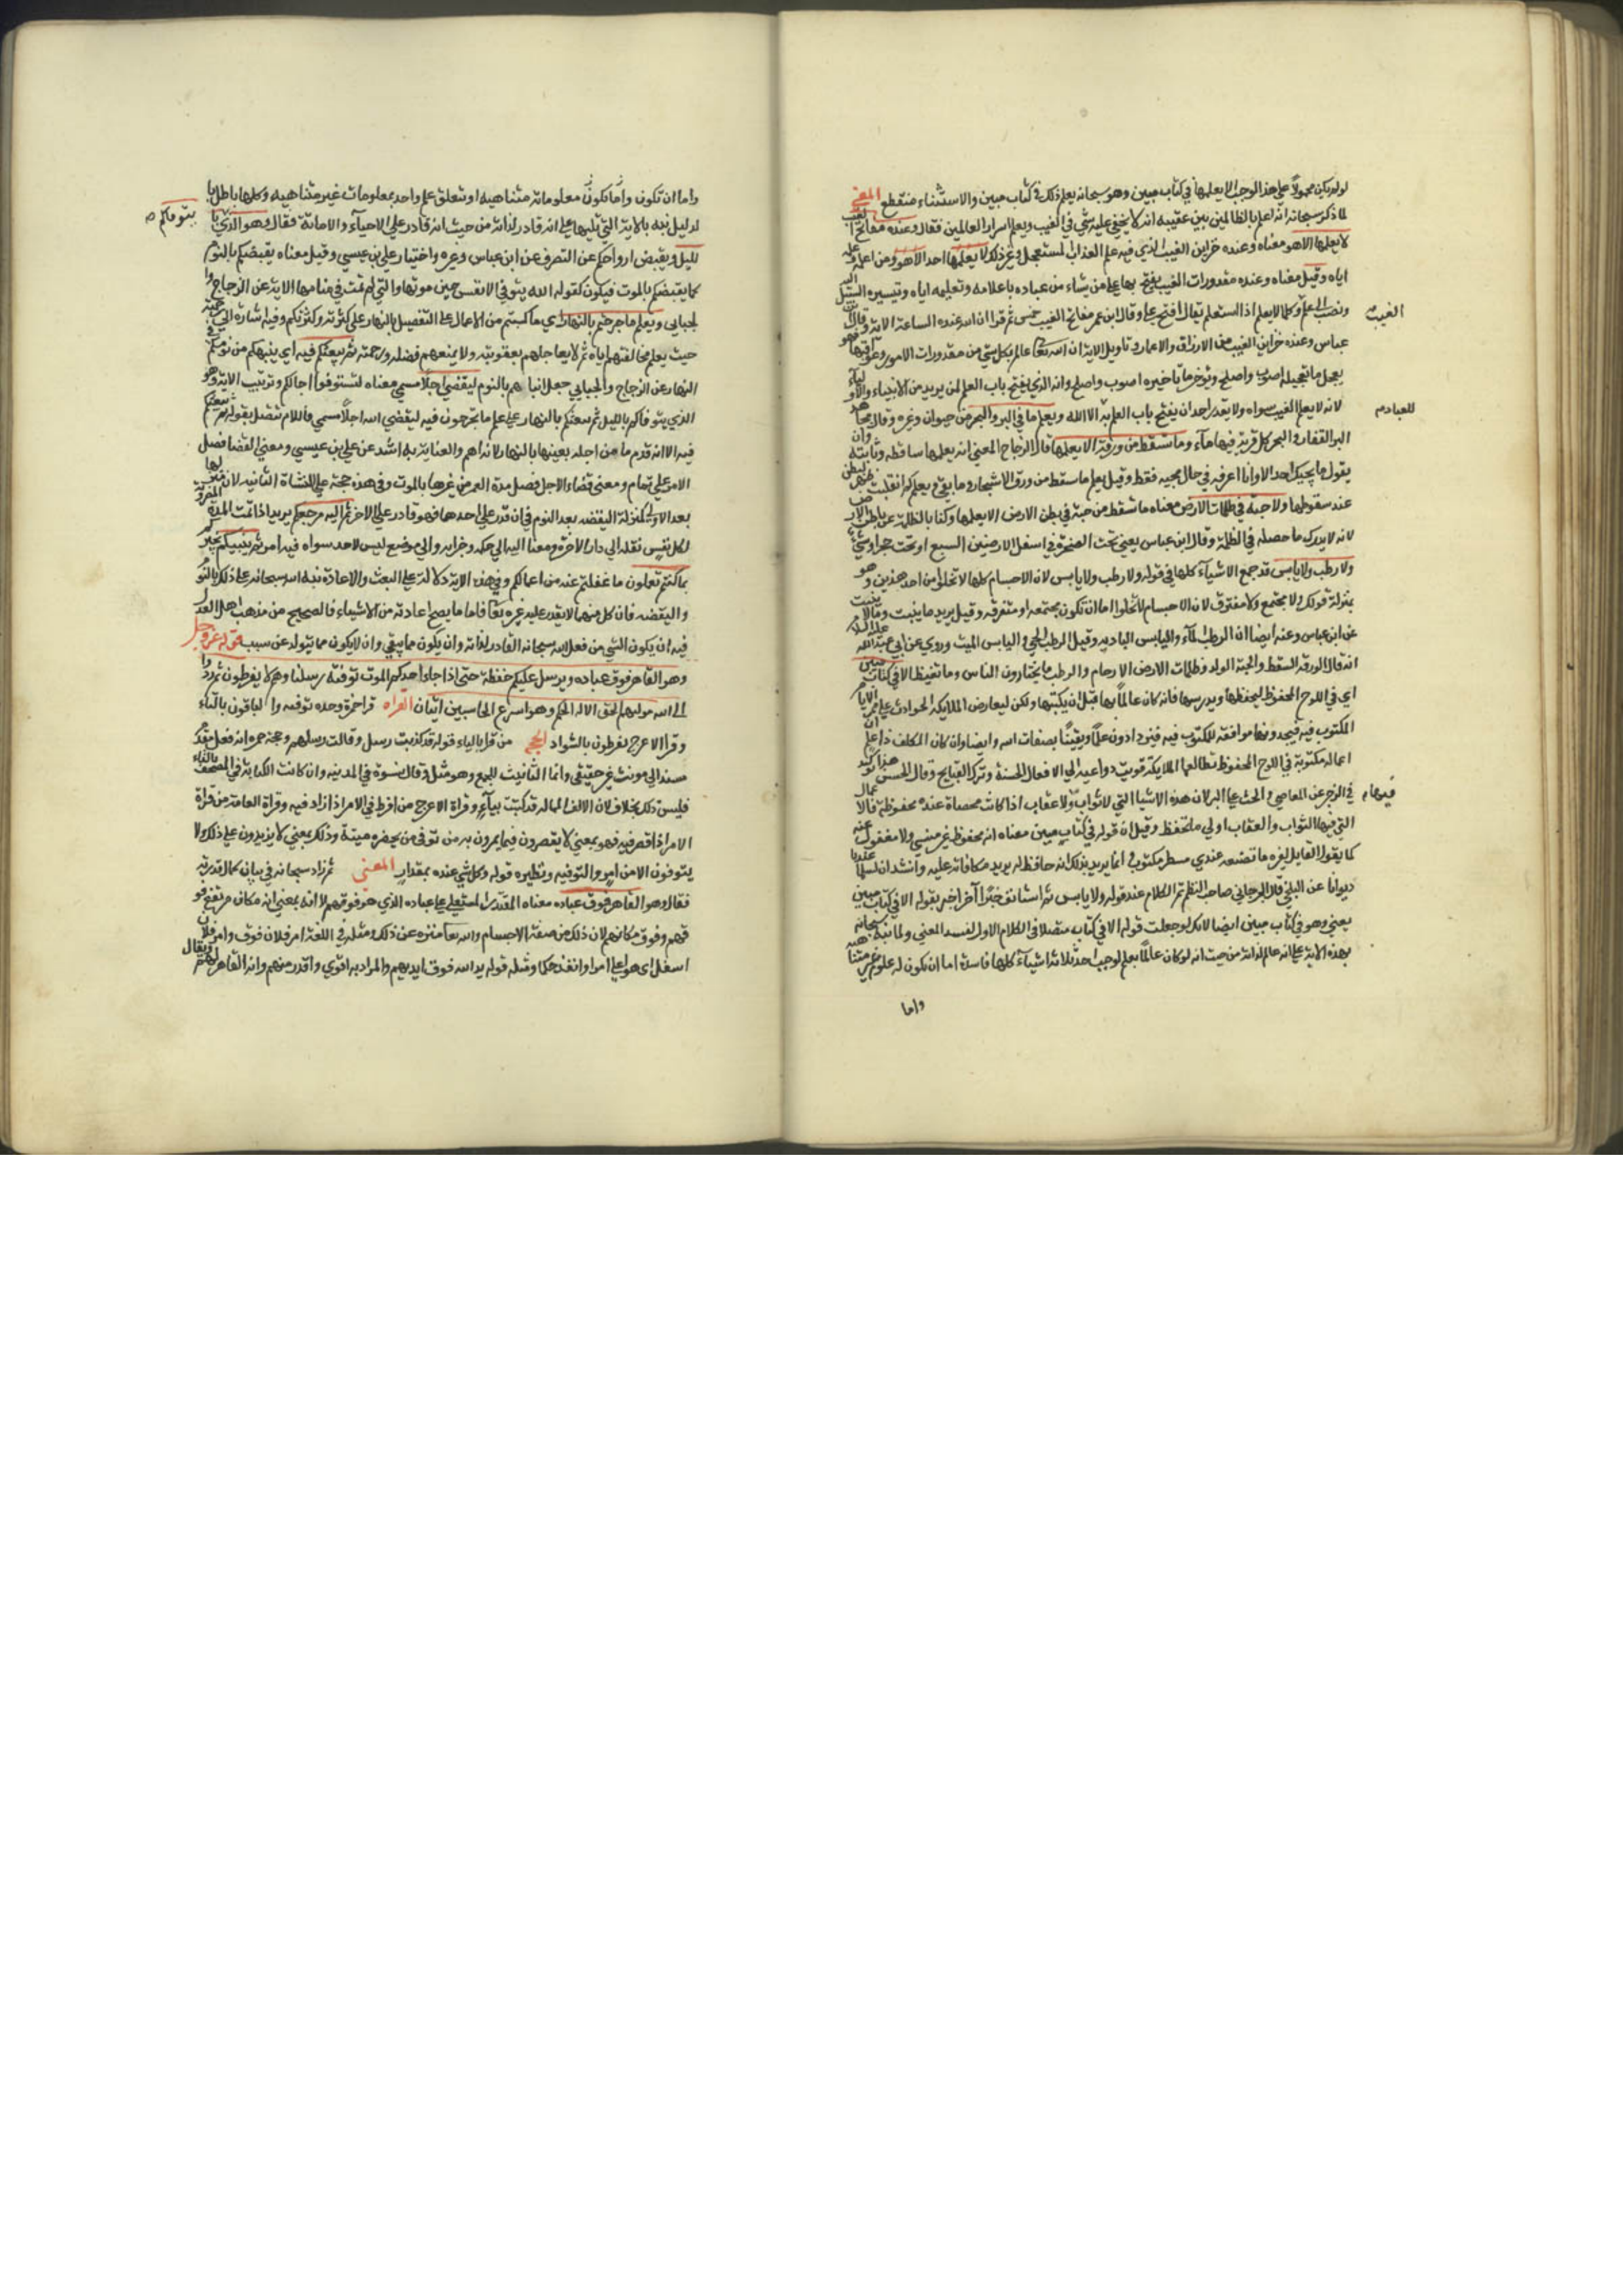 لو لم يكن محمولا على هذا الوجه الا يعلمها في كتاب مبين وهو سبحانه يعلم ذلك في كتاب مبين والاستثناء منقطع المعنى
لما ذكر سبحانه انه اعلم بالظالمين بين عقيبه انه لا يخفى عليه شي في الغيب ويعلم اسرار العالمين فقال وعنده مفاتح الغيب
لا يعلمها الا هو معناه وعنده خزاين الغيب الذي فيه علم العذاب المستعجل وغير ذلك لا يعلمها احد الا هو ومن اعلمه
اياه وقيل معناه وعنده مقدورات الغيب يفتح بها على من يشاء من عباده باعلامه وتعليمه اياه وتيسيره السبيل اليه
ونصب وكما لا يعلم اذا استعلم يقال افتح على وقال ابن عمر مفاتح الغيب خمس ثم قرا ان الله عنده علم الساعة الاية وقال ابن
الغيب
عباس وعنده خزاين الغيب من الارزاق والاعمار وتاويل الاية ان الله تعا عالم بكل شي من مقدورات الامور وعواقبها فهو
يعجل ما تعجيله اصوب واصلح ويؤخر ما تاخيره اصوب واصلح وانه الذي يفتح باب العلم لمن يريد من الانبياء والاولياء
لانه لا يعلم الغيب سواه ولا يقدر احد ان يفتح باب العلم به الا الله ويعلم ما في البر والبحر من حيوان وغيره وقال مجاهد
للعباد
البر القفار والبحر كل قرية فيها ماء وما تسقط من ورقة الا يعلمها قال الزجاج المعنى انه يعلمها ساقطة وثابتة وان
يقول ما يجيك احد الا وانا اعرفه في حال مجيه فقط وقيل يعلم ما سقط من ورق الاشجار وما بقي ويعلم كم انقلبت ظهرا لبطن
عند سقوطها ولا حبة في ظلمات الارض معناه وما تسقط من حبة في بطن الارض الا يعلمها وكنا بالظلمة عن باطن الارض
لانه لا يدرك ما حصله في الظلمة وقال ابن عباس يعني تحت الصخرة في اسفل الارضين السبع او تحت حجر او شي
ولا رطب ولا يابس قد جمع الاشياء كلها في قوله ولا رطب ولا يابس لان الاجسام كلها لا تخلوا من احد هذين وهو
بمنزلة قولك ولا مجتمع ولا مفترق لان الاجسام لا تخلوا اما ان تكون مجتمعة او متفرقة وقيل يريد ما ينبت وما لا ينبت
عن ابن عباس وعنه ايضا ان الرطب الماء واليابس البادية وقيل الرطب الحي واليابس الميت وروي عن ابي عبد الله عليه السلام
انه قال الورقة السقط والحبة الولد وظلمات الارض الارحام والرطب ما يحيى من الناس وما تغيظ الا في كتاب مبين
اي في اللوح المحفوظ ليحفظها ويدرسها فانه كان عالما بها قبل ان يكتبها ولكن ليعارض الملايكة الحوادث على مر الايام
المكتوب فيه فيجدونها موافقة للمكتوب فيه فيزدادون علما ويقينا بصفات الله وايضا وان كان المكلف اذا علم ان
اعماله مكتوبة في اللوح المحفوظ تطالعها الملايكة قويت دواعيه الى الافعال الحسنة وترك القبايح وقال الحسن هذا توكيد
في الزجر عن المعاصي والحث على البر لان هذه الاشيا التي لا ثواب ولا عقاب اذا كانت محصاة عنده محفوظة فالاعمال
فيها
التي فيها الثواب والعقاب اولى ما تحفظ وقيل ان قوله في كتاب مبين معناه انه محفوظ غير منسي ولا مغفول عنه
كما يقول القايل لغيره ما تصنعه عندي مسطر مكتوب انما يريد بذلك انه حافظ له يريد مكافاته عليه وانشد ان لسلمى عندنا
ديوانا عن البلخي قال الجرجاني صاحب النظم تم الكلام عند قوله ولا يابس ثم استانف خبرا آخر اخبر بقوله الا في كتاب مبين
يعني وهو في كتاب مبين ايضا لانك لو جعلت قوله الا في كتاب متصلا في الكلام الاول لفسد المعنى ولما نبه سبحانه
بهذه الاية على انه عالم لذاته من حيث انه لو كان عالما بعلم لوجب احد ثلاثة اشياء كلها فاسدة اما ان يكون له علوم غير متناهية
واما
واما ان تكون واما تكون معلوماته متناهية او تتعلق علم واحد بمعلومات غير متناهية وكلها باطل با
لدليل نبه بالاية التي تليها على انه قادر لذاته من حيث انه قادر على الاحياء والاماتة فقال وهو الذي با
يتوفاكم
لليل ويقبض ارواحكم عن التصرف عن ابن عباس وغيره واختيار علي بن عيسى وقيل معناه يقبضكم بالنوم
كما يقبضكم بالموت فيكون كقوله الله يتوفى الانفس حين موتها والتي لم تمت في منامها الاية عن الزجاج وا
لجبايي ويعلم ما جرحتم بالنهار اي ما كسبتم من الاعمال على التفصيل بالنهار على كثرته وكثرتكم وفيه اشارة الى رحمته
حيث يعلم مخالفتهم اياه ثم لا يعاجلهم بعقوبته ولا يمنعهم فضله ورحمته ثم يبعثكم فيه اي ينبهكم من نومكم في
النهار عن الزجاج والجبايي جعل انتباههم بالنوم ليقضي اجلا مسمى معناه لتستوفوا اجالكم وترتيب الاية وهو
الذي يتوفاكم بالليل ثم يبعثكم بالنهار على علم ما تجرحون فيه ليقضي الله اجلا مسمى فاللام تتصل بقوله ثم يبعثكم
فيه الا انه قدم ما من اجله يبعثها بالنهار لانه اهم والعناية به اشد عن علي بن عيسى ومعنى القضا فصل
الامر على تمام ومعنى قضاء الاجل فصل مدة العمر من غيرها بالموت وفي هذه حجة على النشاة الثانية لان منزلتها
بعد الاولى كمنزلة اليقضه بعد النوم في ان قدر على احدها فهو قادر على الاخر ثم اليه مرجعكم يريد اذا تمت المدة المضروبة
لكل نفس نقله الى دار الاخرة ومعنا اليه الى حكمه وجزايه والى موضع ليس لاحد سواه فيه امر ثم ينبيكم يخبركم
بما كنتم تعلمون ما غفلتم عنه من اعمالكم وفي هذه الاية دلالة على البعث والاعادة نبه الله سبحانه على ذلك بالنوم
واليقضه فان كل منهما لا يقدر عليه غيره تعا فاما ما يصح اعادته من الاشياء فالصحيح من مذهب اهل العدل
فيه ان يكون الشي من فعل الله سبحانه القادر لذاته وان يكون مما يبقي وان لا يكون مما يتولد عن سبب قوله عز وجل
وهو القاهر فوق عباده ويرسل عليكم حفظة حتى اذا جاء احدكم الموت توفته رسلنا وهم لا يفرطون ثم ردوا
الى الله موليهم الحق الا له الحكم وهو اسرع الحاسبين ايتان القراه قرا حمزة وحده توفيه والباقون بالتاء
وقرا الاعرج يفرطون بالشواد الحجه من قرا بالياء قوله قد كذبت رسل وقالت رسلهم وحجة حمزه انه فعل مقدم
مسند الى مونث غير حقيقي وانما التانيث للجمع وهو مثل وقال نسوة في المدينه وان كانت الكتابة في المصحف بالتاء
فليس ذلك بخلاف لان الالف الممالة قد كتبت بياء وقراة الاعرج من افرط في الامر اذا زاد فيه وقراة العامة من فرط في
الامر اذا قصر فيه فهو بمعنى لا يقصرون فيما يمرون به من توفي من يحضره ميتة وذلك بمعنى لا يزيدون على ذلك ولا
يتوفون الا من امر والتوفيه ونظيره قوله وكل شي عنده بمقدار المعنى ثم زاد سبحانه في بيان كمال قدرته
فقال وهو القاهر فوق عباده معناه المقتدر المستعلي على عباده الذي هو فوقهم لا انه بمعنى انه مكان مرتفع فو
قهم وفوق مكانهم لان ذلك من صفة الاجسام والله تعا منزه عن ذلك ومثله في اللغة امر فلان فوق وامر فلان
اسفل اي هو اعلى امرا وانفذ حكما ومثله قوله يد الله فوق ايديهم والمراد به اقوي واقدر منهم وانه القاهر لهم ويقال